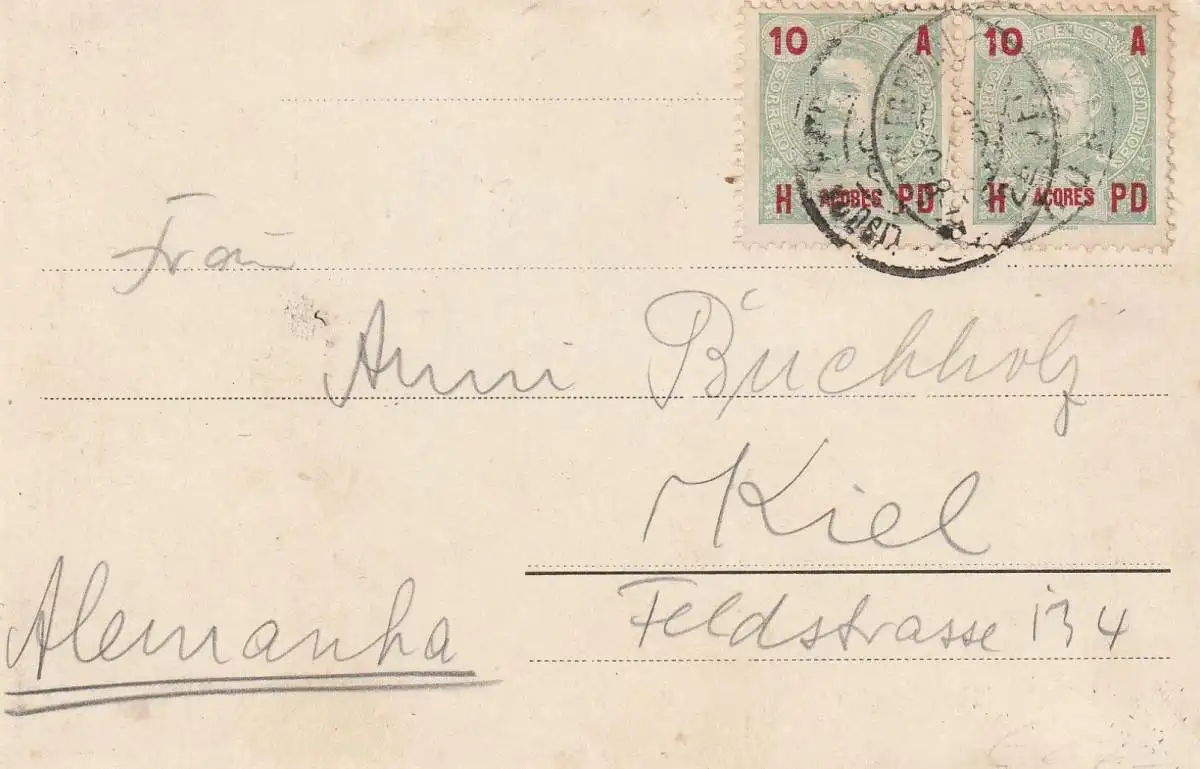 10 REIS A
CORREIOS PORTUGAL
H AÇORES PD
10 REIS A
CORREIOS PORTUGAL
H AÇORES PD
Frau
Anni Buchholz
Kiel
Feldstrasse 134
Alemanha